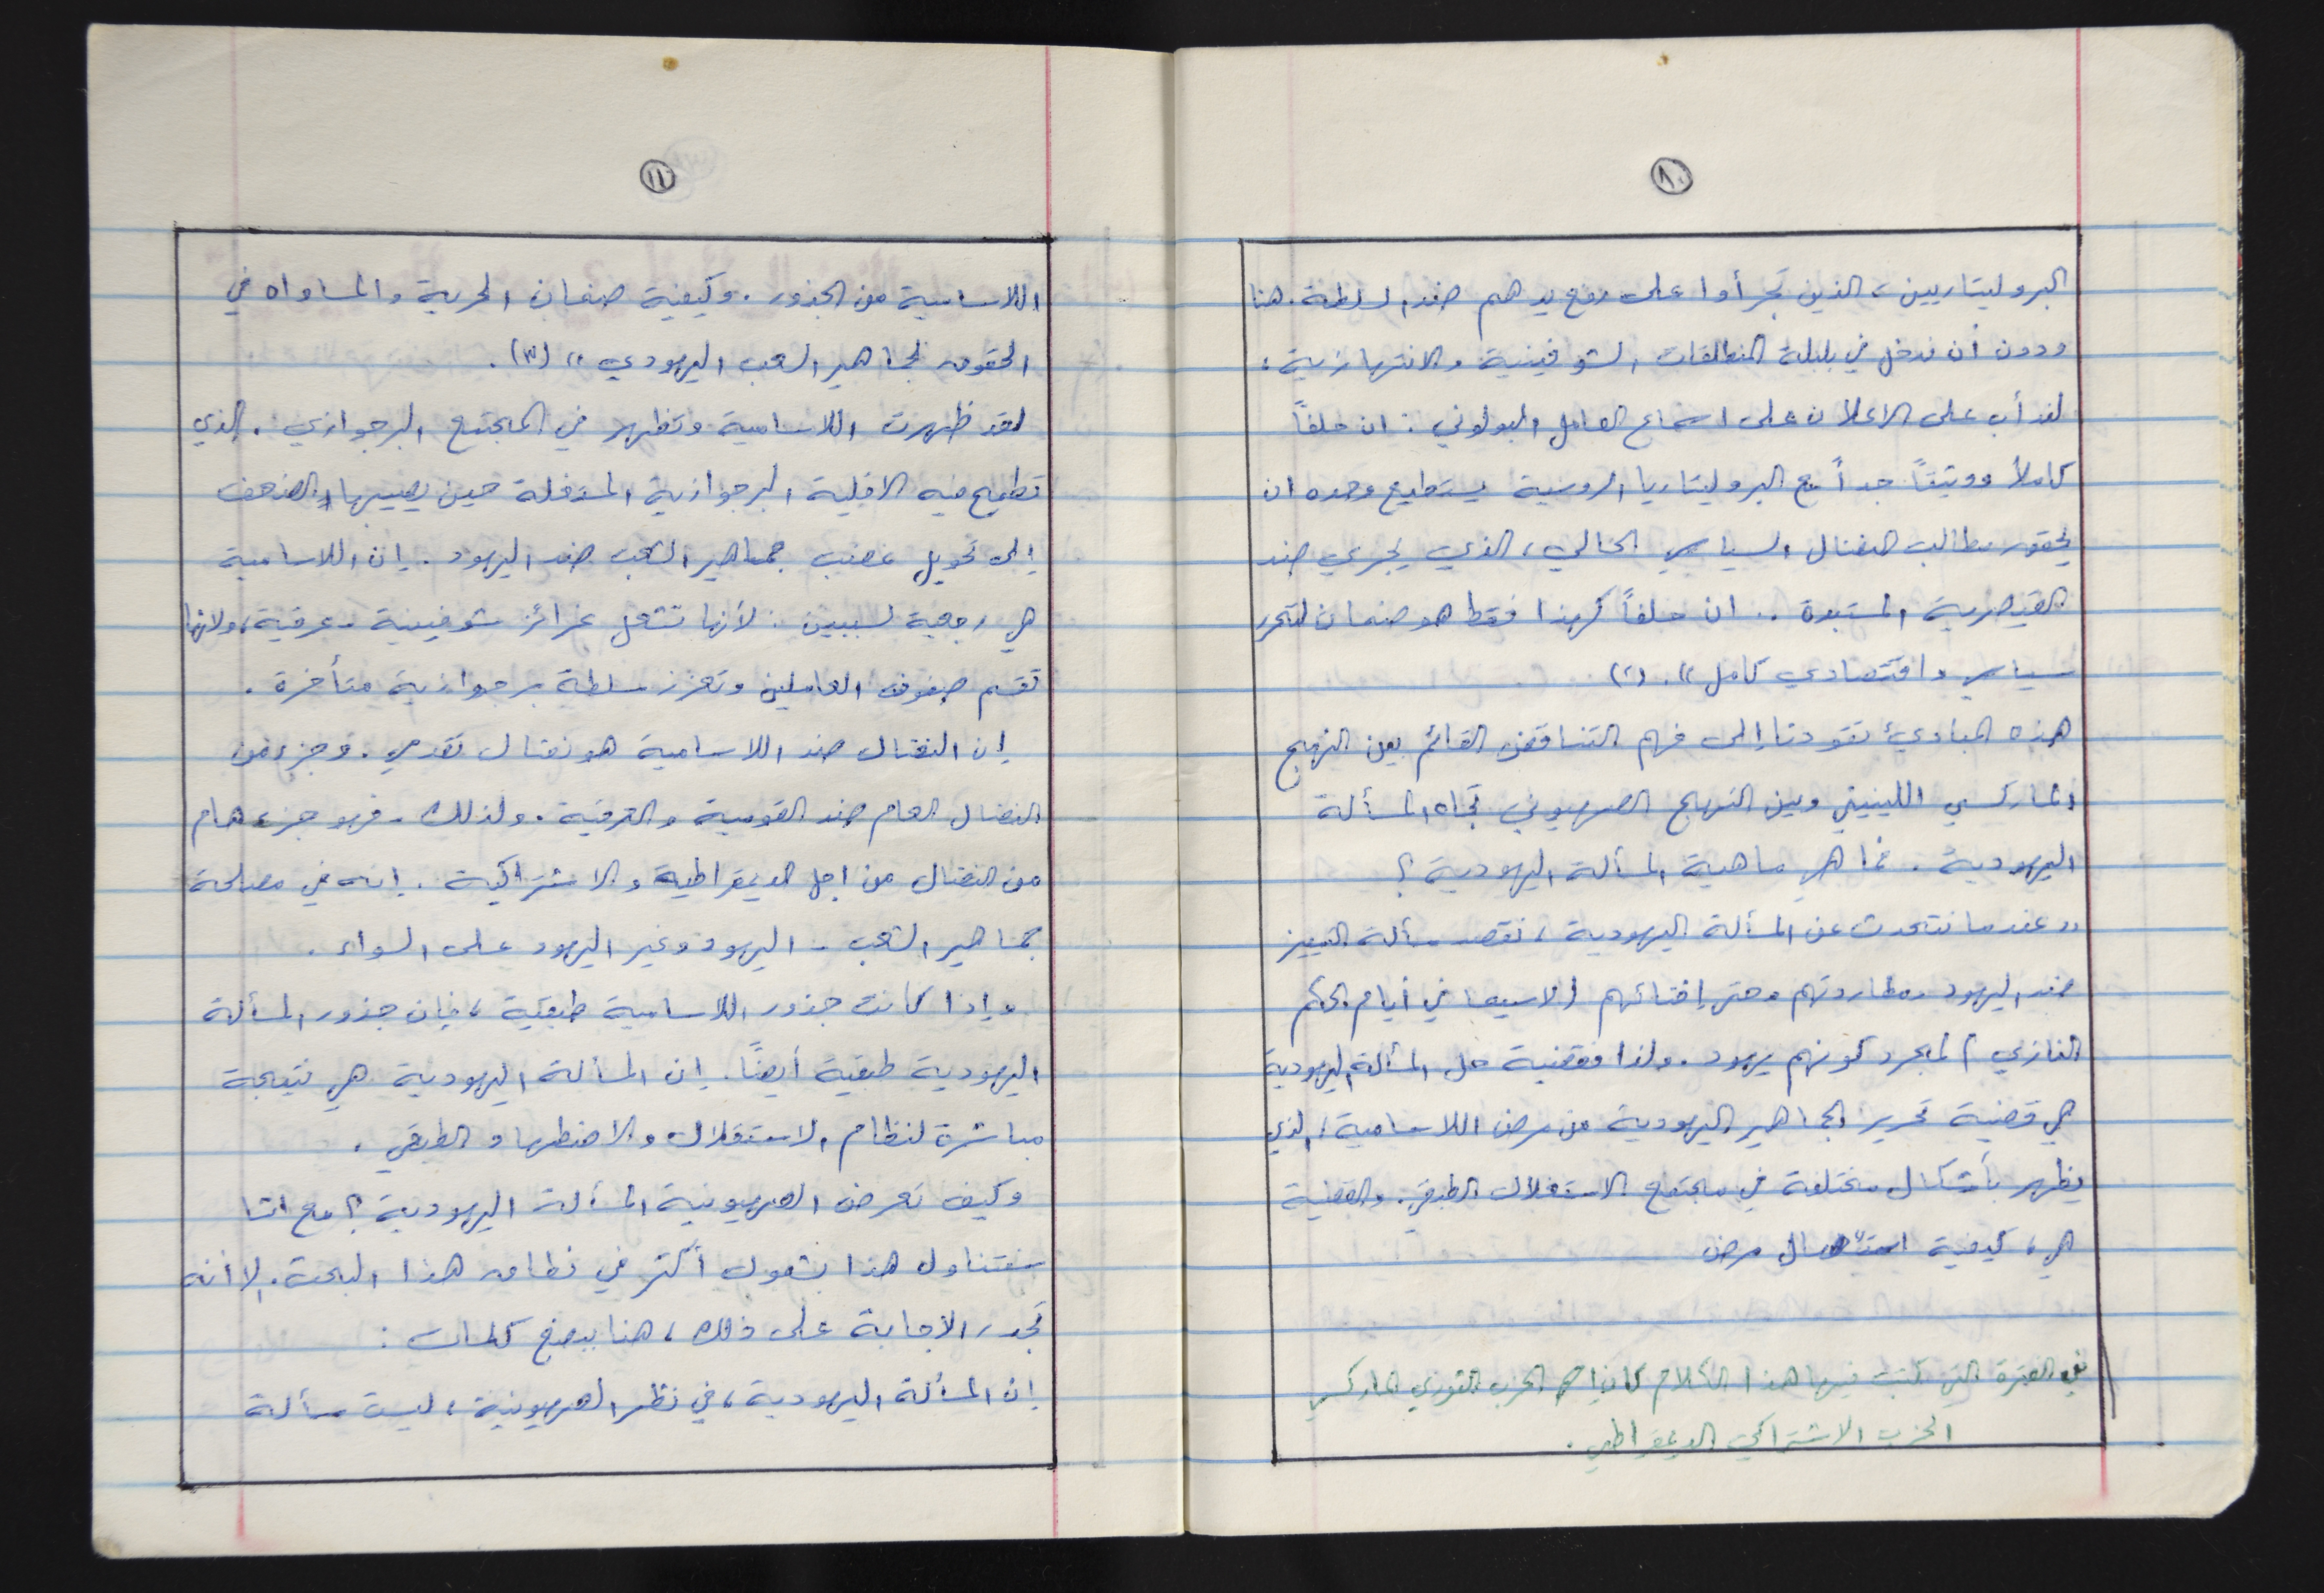 ١٠
البروليتاريين، الذين تجرأوا على رفع يدهم ضد السلطة. هنا
ودون أن ندخل في بلبلة المنطلقات الشوفينية والانتهازية،
لندأب على الاعلان على اسماع العامل البولوني: ان حلفاً
كاملاً ووثيقاً جداً مع البروليتاريا الروسية يستطيع وحده ان
يحقق مطالب النضال السياسي الحالي، الذي يجري ضد
القيصرية المستبدة.. ان حلفاً كهذا فقط هو ضمان لتحرر
سياسي واقتصادي كامل». (٢)
هذه المبادئ تقودنا إلى فهم التناقض القائم بين النهج
الماركسي اللينيني وبين النهج الصهيوني تجاه المسألة
اليهودية. فما هي ماهية المسألة اليهودية؟
«عندما نتحدث عن المسألة اليهودية، نقصد مسألة التمييز
ضد اليهود ومطاردتهم وحتى إفنائهم (لاسيما في أيام الحكم
النازي) لمجرد كونهم يهود. ولذا فقضية حل المسألة اليهودية
هي قضية تحرير الجماهير اليهودية من مرض اللاسامية، الذي
يظهر بأشكال مختلفة في مجتمع الاستغلال الطبقي. والقضية
هي، كيفية استئصال مرض
في الفترة التي كتبت فيها هذا الكلام كان اسم الحزب الثوري الماركسي
الحزب الاشتراكي الديمقراطي.
١١
اللاسامية من الجذور. وكيفية ضمان الحرية والمساواه في
الحقوق لجماهير الشعب اليهودي» (٣).
لقد ظهرت اللاسامية وتظهر في المجتمع البرجوازي. الذي
تطمح فيه الاقلية البرجوازية المستغلة حين يصيبها الضعف
إلى تحويل غضب جماهير الشعب ضد اليهود. إن اللاسامية
هي رجعية لسببين: لأنها تشعل غرائز شوفينية - عرقية، ولانها
تقسم صفوف العاملين وتعزز سلطة برجوازية متأخرة.
إن النضال ضد اللاسامية هو نضال تقدمي. وجزء من
النضال العام ضد القومية والعرقية. ولذلك - فهو جزء هام
من النضال من اجل الديمقراطية والاشتراكية. إنه في مصلحة
جماهير الشعب - اليهود وغير اليهود على السواء.
وإذا كانت جذور اللاسامية طبقية، فإن جذور المسألة
اليهودية طبقية أيضًا. إن المسألة اليهودية هي نتيجة
مباشرة لنظام الاستغلال والاضطهاد الطبقي.
وكيف تعرض الصهيونية المسألة اليهودية؟ مع اننا
سنتناول هذا بشمول أكثر في نطاق هذا البحث. الا انه
تجدر الاجابة على ذلك، هنا ببضع كلمات:
إن المسألة اليهودية، في نظر الصهيونية، ليست مسألة